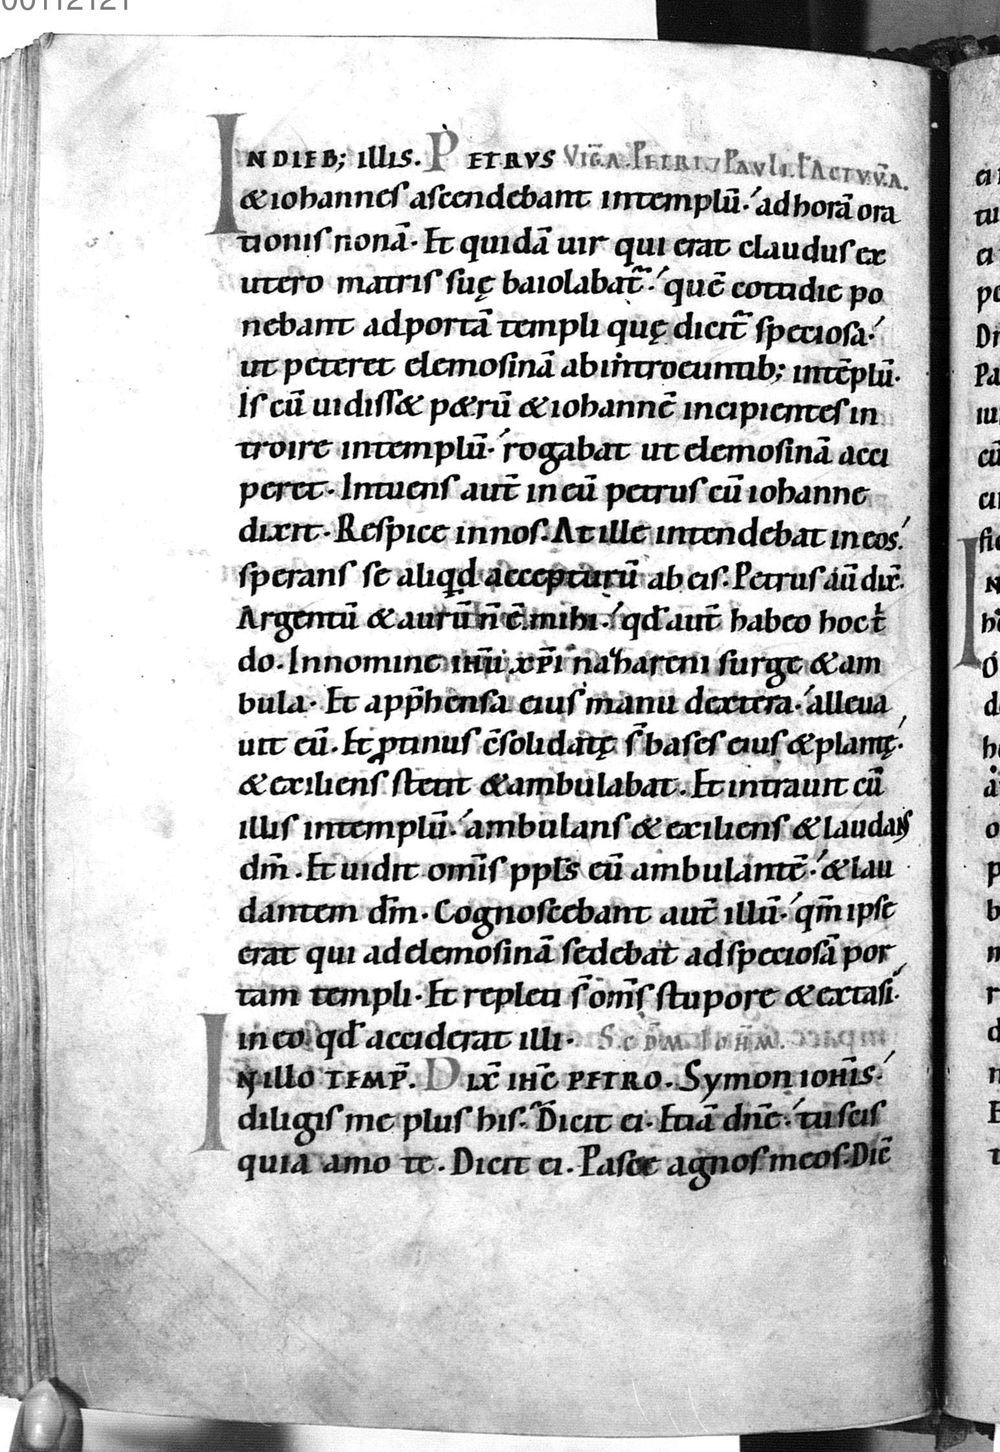 00112121
INDIEB; illis. PETRVS VIG̅A. PETRI 7 PAVLI. L̅ ACTVV̅.A.
&iohannes ascendebant intemplū. ad horā ora
tionis nonā. Et quidā uir qui erat claudus ex
utero matris suę baiolabat̅. quē cottidie po
nebant adportā templi quę dicit̅ speciosa.
ut peteret elemosinā abintroeuntib; intēplū.
Is cū uidiss& p&rū &iohannē incipientes in
troire intemplū. rogabat ut elemosinā acci
peret. Intuens aut̅ ineū petrus cū iohanne
dixit. Respice innos. At ille intendebat ineos.
sperans se aliqd accepturū ab eis. Petrus aū dix̅.
Argentū &aurū n̅ ē mihi. qd̅ aut̅ habeo hoc t̅
do. Innomine ih̅u xp̅i nazareni surge &am
bula. Et app̅hensa eius manu dextera. alleua
uit eū. Et ꝓtinus c̅solidatę s̅ bases eius &plantę.
&exiliens stetit &ambulabat. Et intrauit cū
illis intemplū. ambulans &exiliens &laudans
dm̅. Et uidit om̅is ppl̅s eū ambulantē. &lau
dantem dm̅. Cognoscebant aut̅ illū. qm̅ ipse
erat qui adelemosinā sedebat adspeciosā por
tam templi. Et repleti s̅ om̅s stupore &extasi.
ineo qd̅ acciderat illi. S.c̅d̅m. Ioh̅m.
INillo TEMP̅. Dix̅ IHC̅ PETRO. Symon ioh̅is.
diligis me plus his. Dicit ei. Etiā dn̅e. tu scis
quia amo te. Dicit ei. Pasce agnos meos. Dic̅